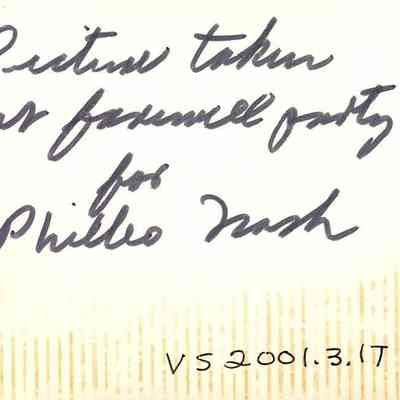 Picture taken
at farewell party
for
Philleo Nash
VS 2001.3.17